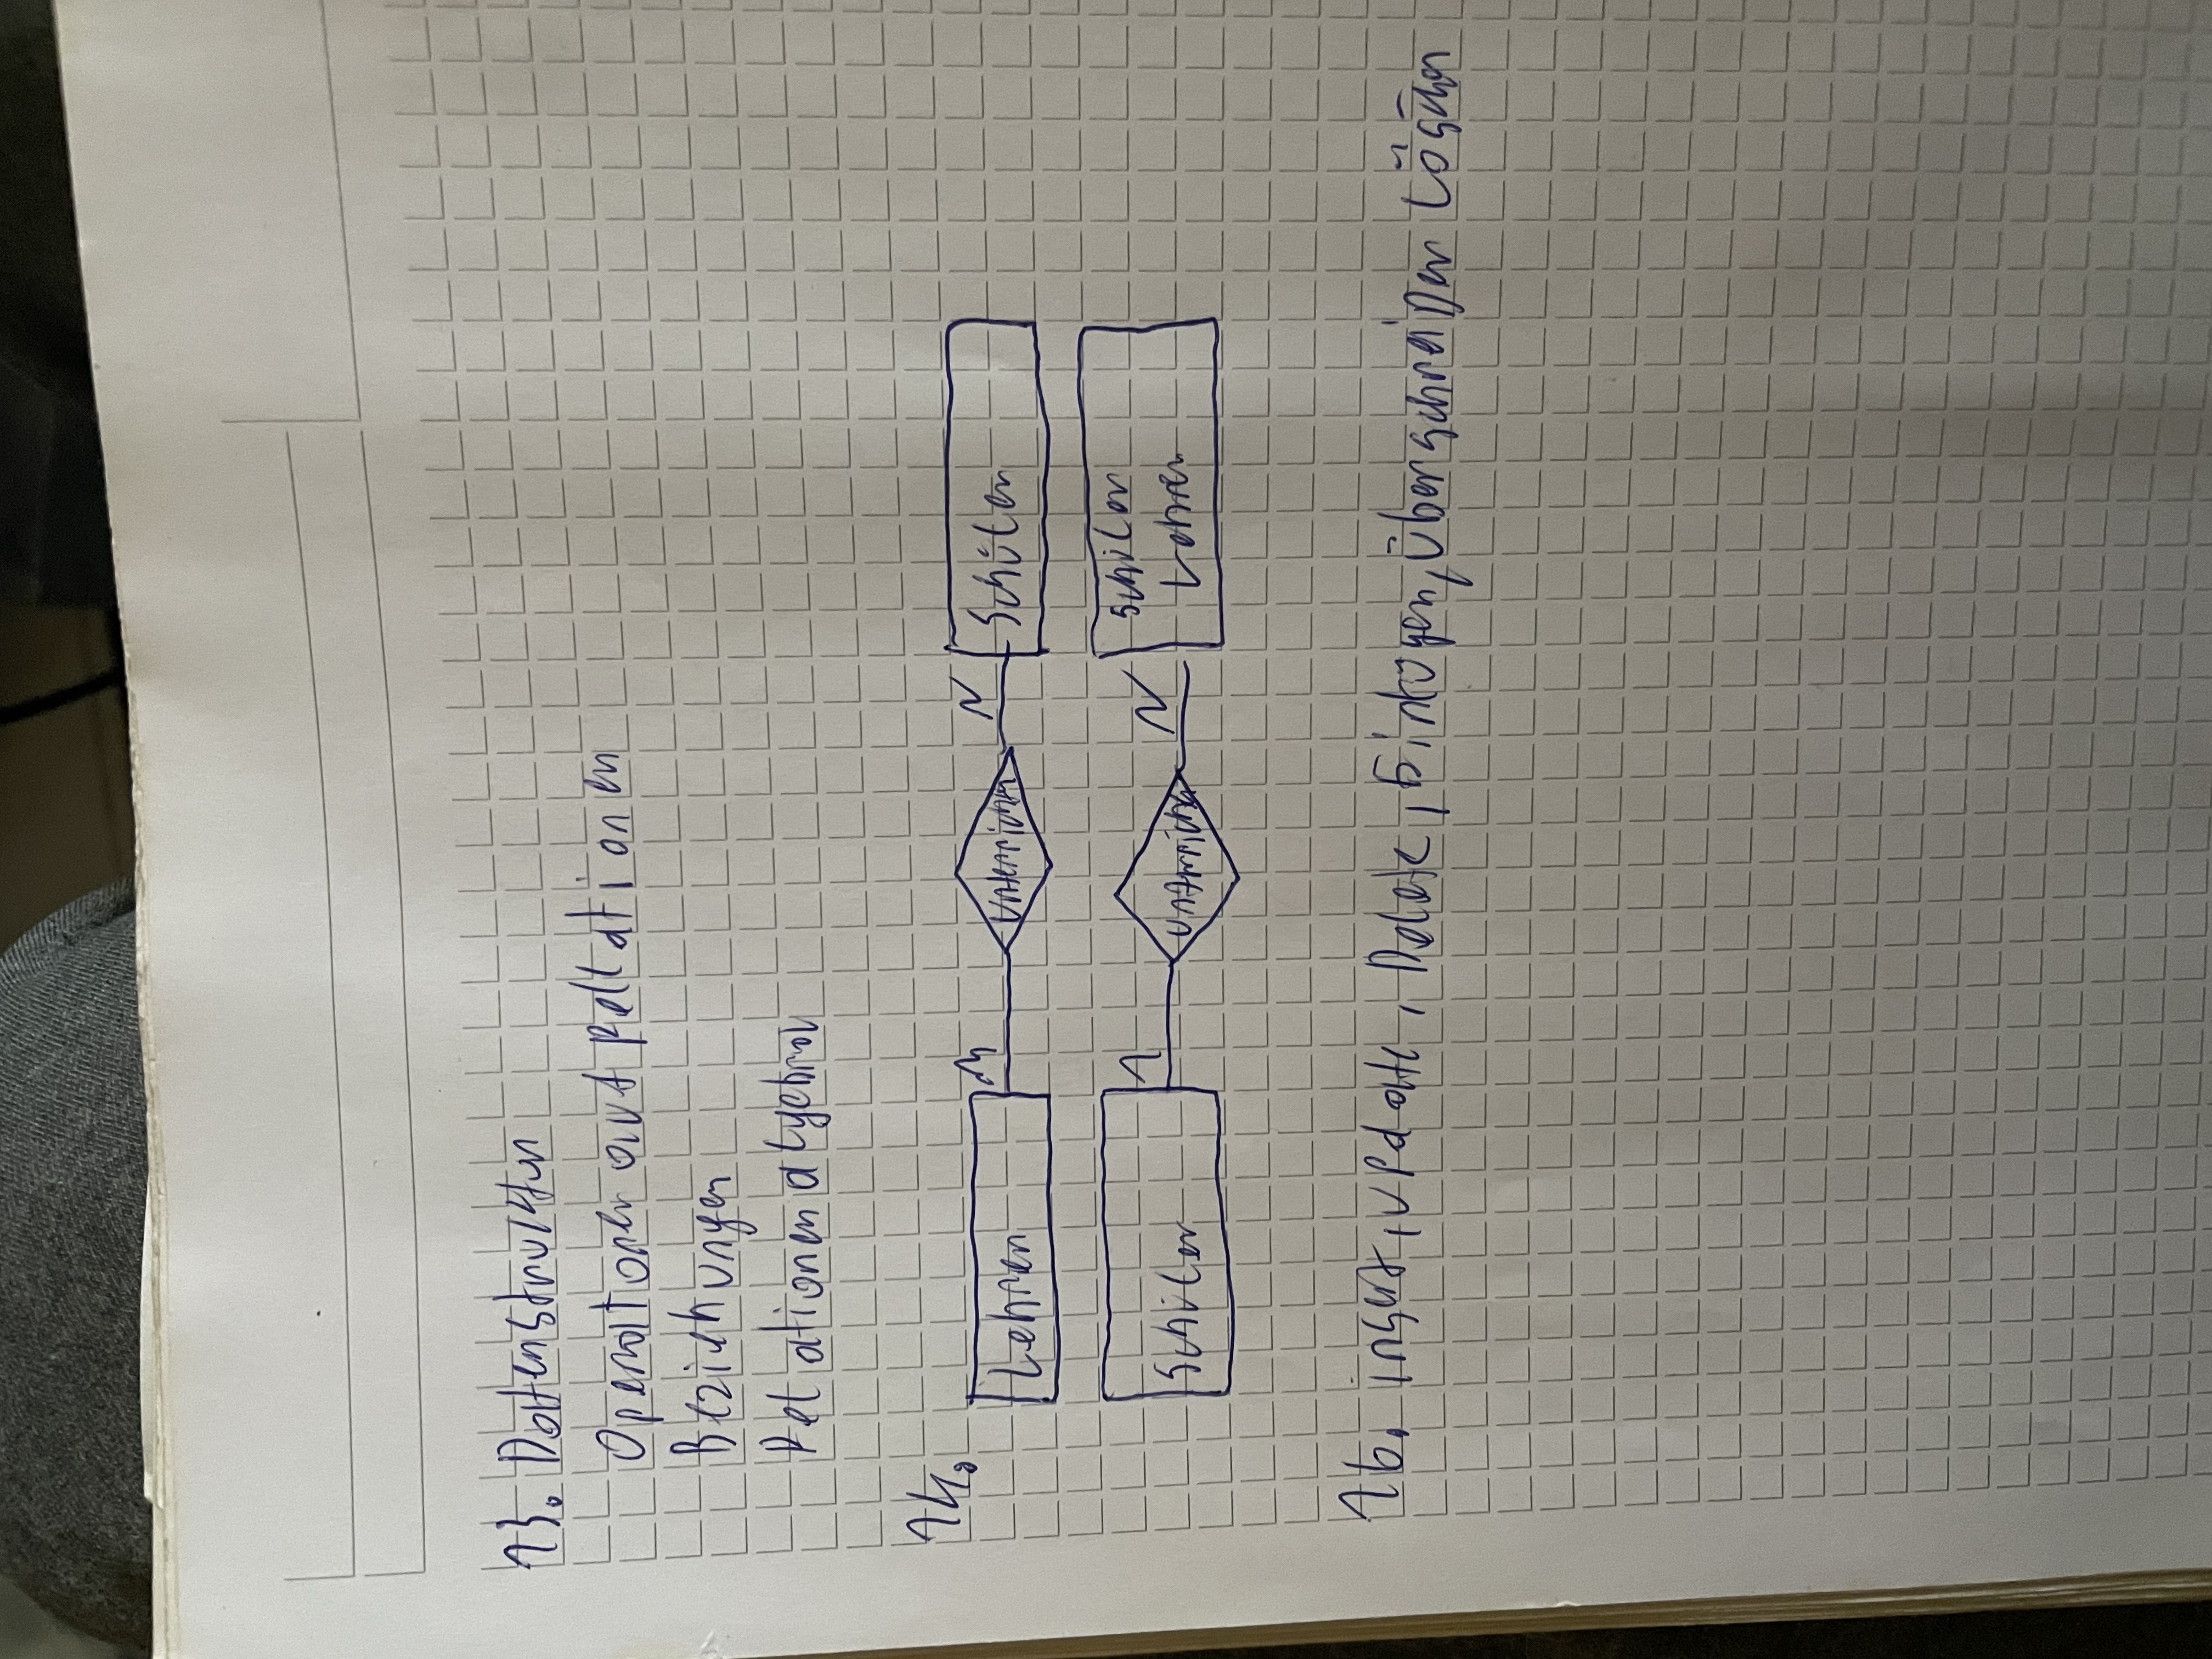 13. Datenstruktur
Operationen auf Rellationen
Beziehungen
Relationenalgebra
14.
Lehrer M Unterricht N Schüler
Schüler 1 Unterricht N Schüler
Lehrer
16. insert, update, Delete, Einfügen, Überschreiben Löschen